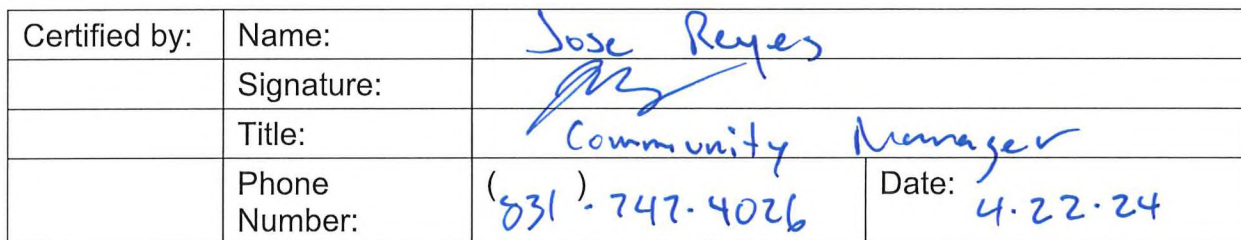 Certified by: Name: Jose Reyes
Signature:
Title: Community Manager
Phone Number: (831) · 747 · 4026 Date: 4 · 22 · 24